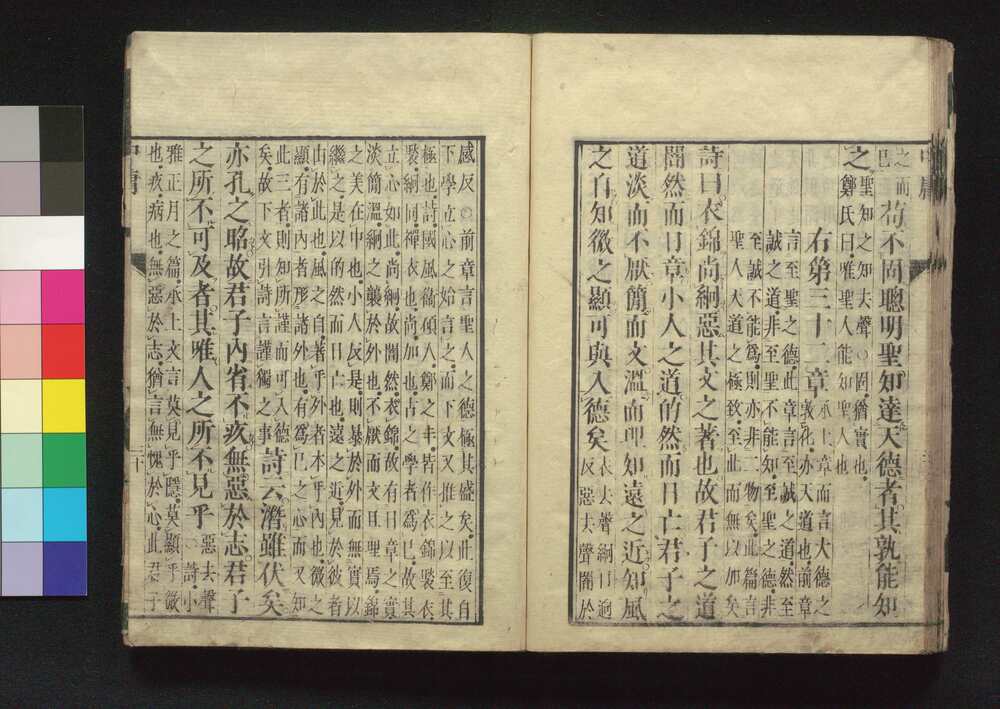 之而
已
苟不固聰明聖知達天德者其孰能知
之
聖知之知去聲○固猶實也
鄭氏曰唯聖人能知聖人也
右第三十二章
承上章而言大德之
敦化亦天道也前章
言至聖之德此章言至誠之道然至
誠之道非至聖不能知至聖之德非
至誠不能為則亦非二物矣此篇言
聖人天道之極致至此而無以加矣
詩曰衣錦尚絅惡其文之著也故君子之道
闇然而日章小人之道的然而日亡君子之
道淡而不厭簡而文溫而理知遠之近知風
之自知微之顯可與入德矣
衣去聲絅口迥
反惡去聲闇於
感反○前章言聖人之德極其盛矣此復自
下學立心之始言之而下文又推之以至其
極也詩國風衛碩人鄭之丰皆作衣錦褧衣
褧絅同襌衣也尚加也古之學者爲己故其
立心如此尚絅故闇然衣錦故有日章之實
淡簡溫絅之襲於外也不厭而文且理焉錦
之美在中也小人反是則暴於外而無實以
繼之是以的然而日亡也遠之近見於彼者
由於此也風之自著乎外者本乎內也微之
顯有諸內者形諸外也有爲己之心而又知
此三者則知所謹而可入德
矣故下文引詩言謹獨之事
詩云潛雖伏矣
亦孔之昭故君子內省不疚無惡於志君子
之所不可及者其唯人之所不見乎
惡去聲
○詩小
雅正月之篇承上文言莫見乎隱莫顯乎微
也疚病也無惡於志猶言無愧於心此君子
中庸